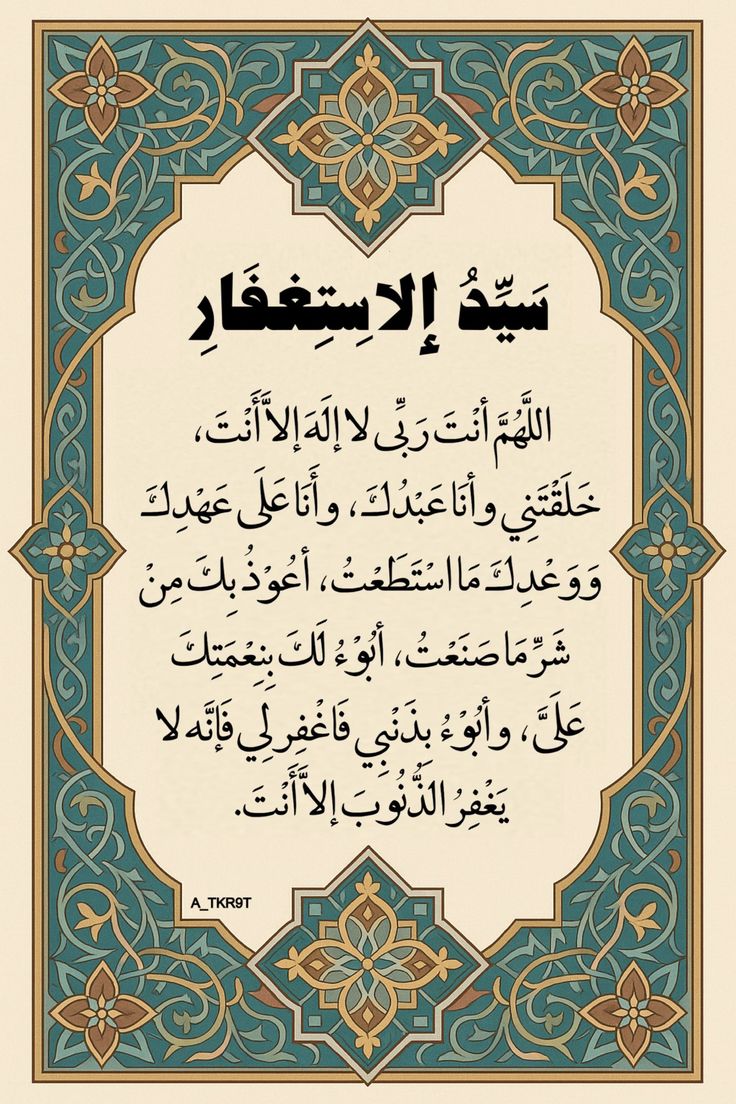 سَيِّدُ إلاسِتِغفَارِ
اللَّهُمَّ أنْتَ رَبِّى لا إلَهَ إلاَّ أَنْتَ،
خَلَقْتَنِي وأنَا عَبْدُكَ، وأَنَا عَلَى عَهْدِكَ
وَوَعْدِكَ مَا اسْتَطَعْتُ، أعُوْذُ بِكَ مِنْ
شَرِّ مَا صَنَعْتُ، أبُوْءُ لَكَ بِنِعْمَتِكَ
عَلَىَّ، وأبُوْءُ بِذَنْبِي فَاغْفِر لِي فَإنَّه لا
يَغْفِرُ الذُّنُوبَ إلاَّ أَنْتَ.
A_TKR9T